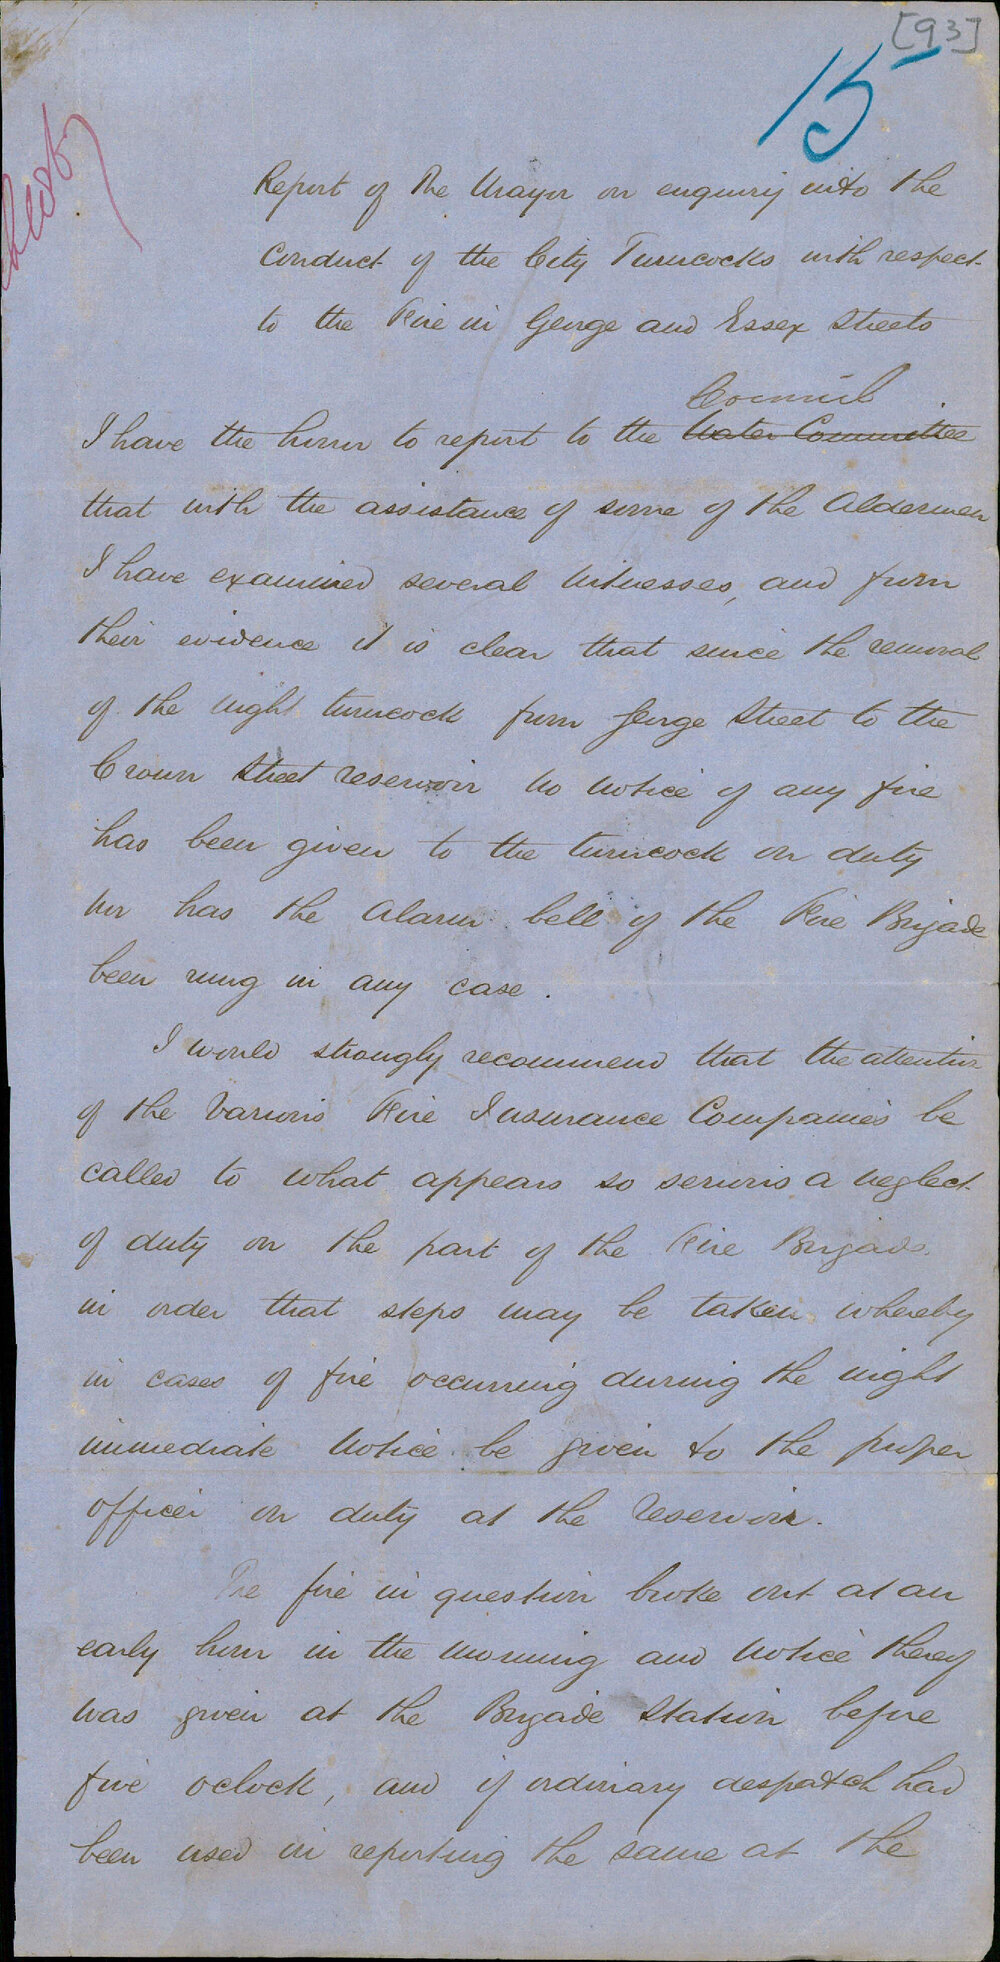 [93]
15
Report of the Mayor on enquiry into the
Conduct of the City Turncocks with respect
to the Fire in George and Essex Streets
Council
I have the honor to report to the Water Committee
that with the assistance of some of the Aldermen
I have examined several Witnesses, and from
their evidence it is clear that since the removal
of the night turncock from George Street to the
Crown Street reservoir no notice of any fire
has been given to the turncock on duty
nor has the Alarm bell of the Fire Brigade
been rung in any case.
I would strongly recommend that the attention
of the various Fire Insurance Companies be
called to what appears so serious a neglect
of duty on the part of the Fire Brigade
in order that steps may be taken whereby
in cases of fire occurring during the night
immediate notice be given to the proper
officer on duty at the reservoir.
The fire in question broke out at an
early hour in the morning and notice thereof
was given at the Brigade Station before
five oclock, and if ordinary despatch had
been used in reporting the same at the